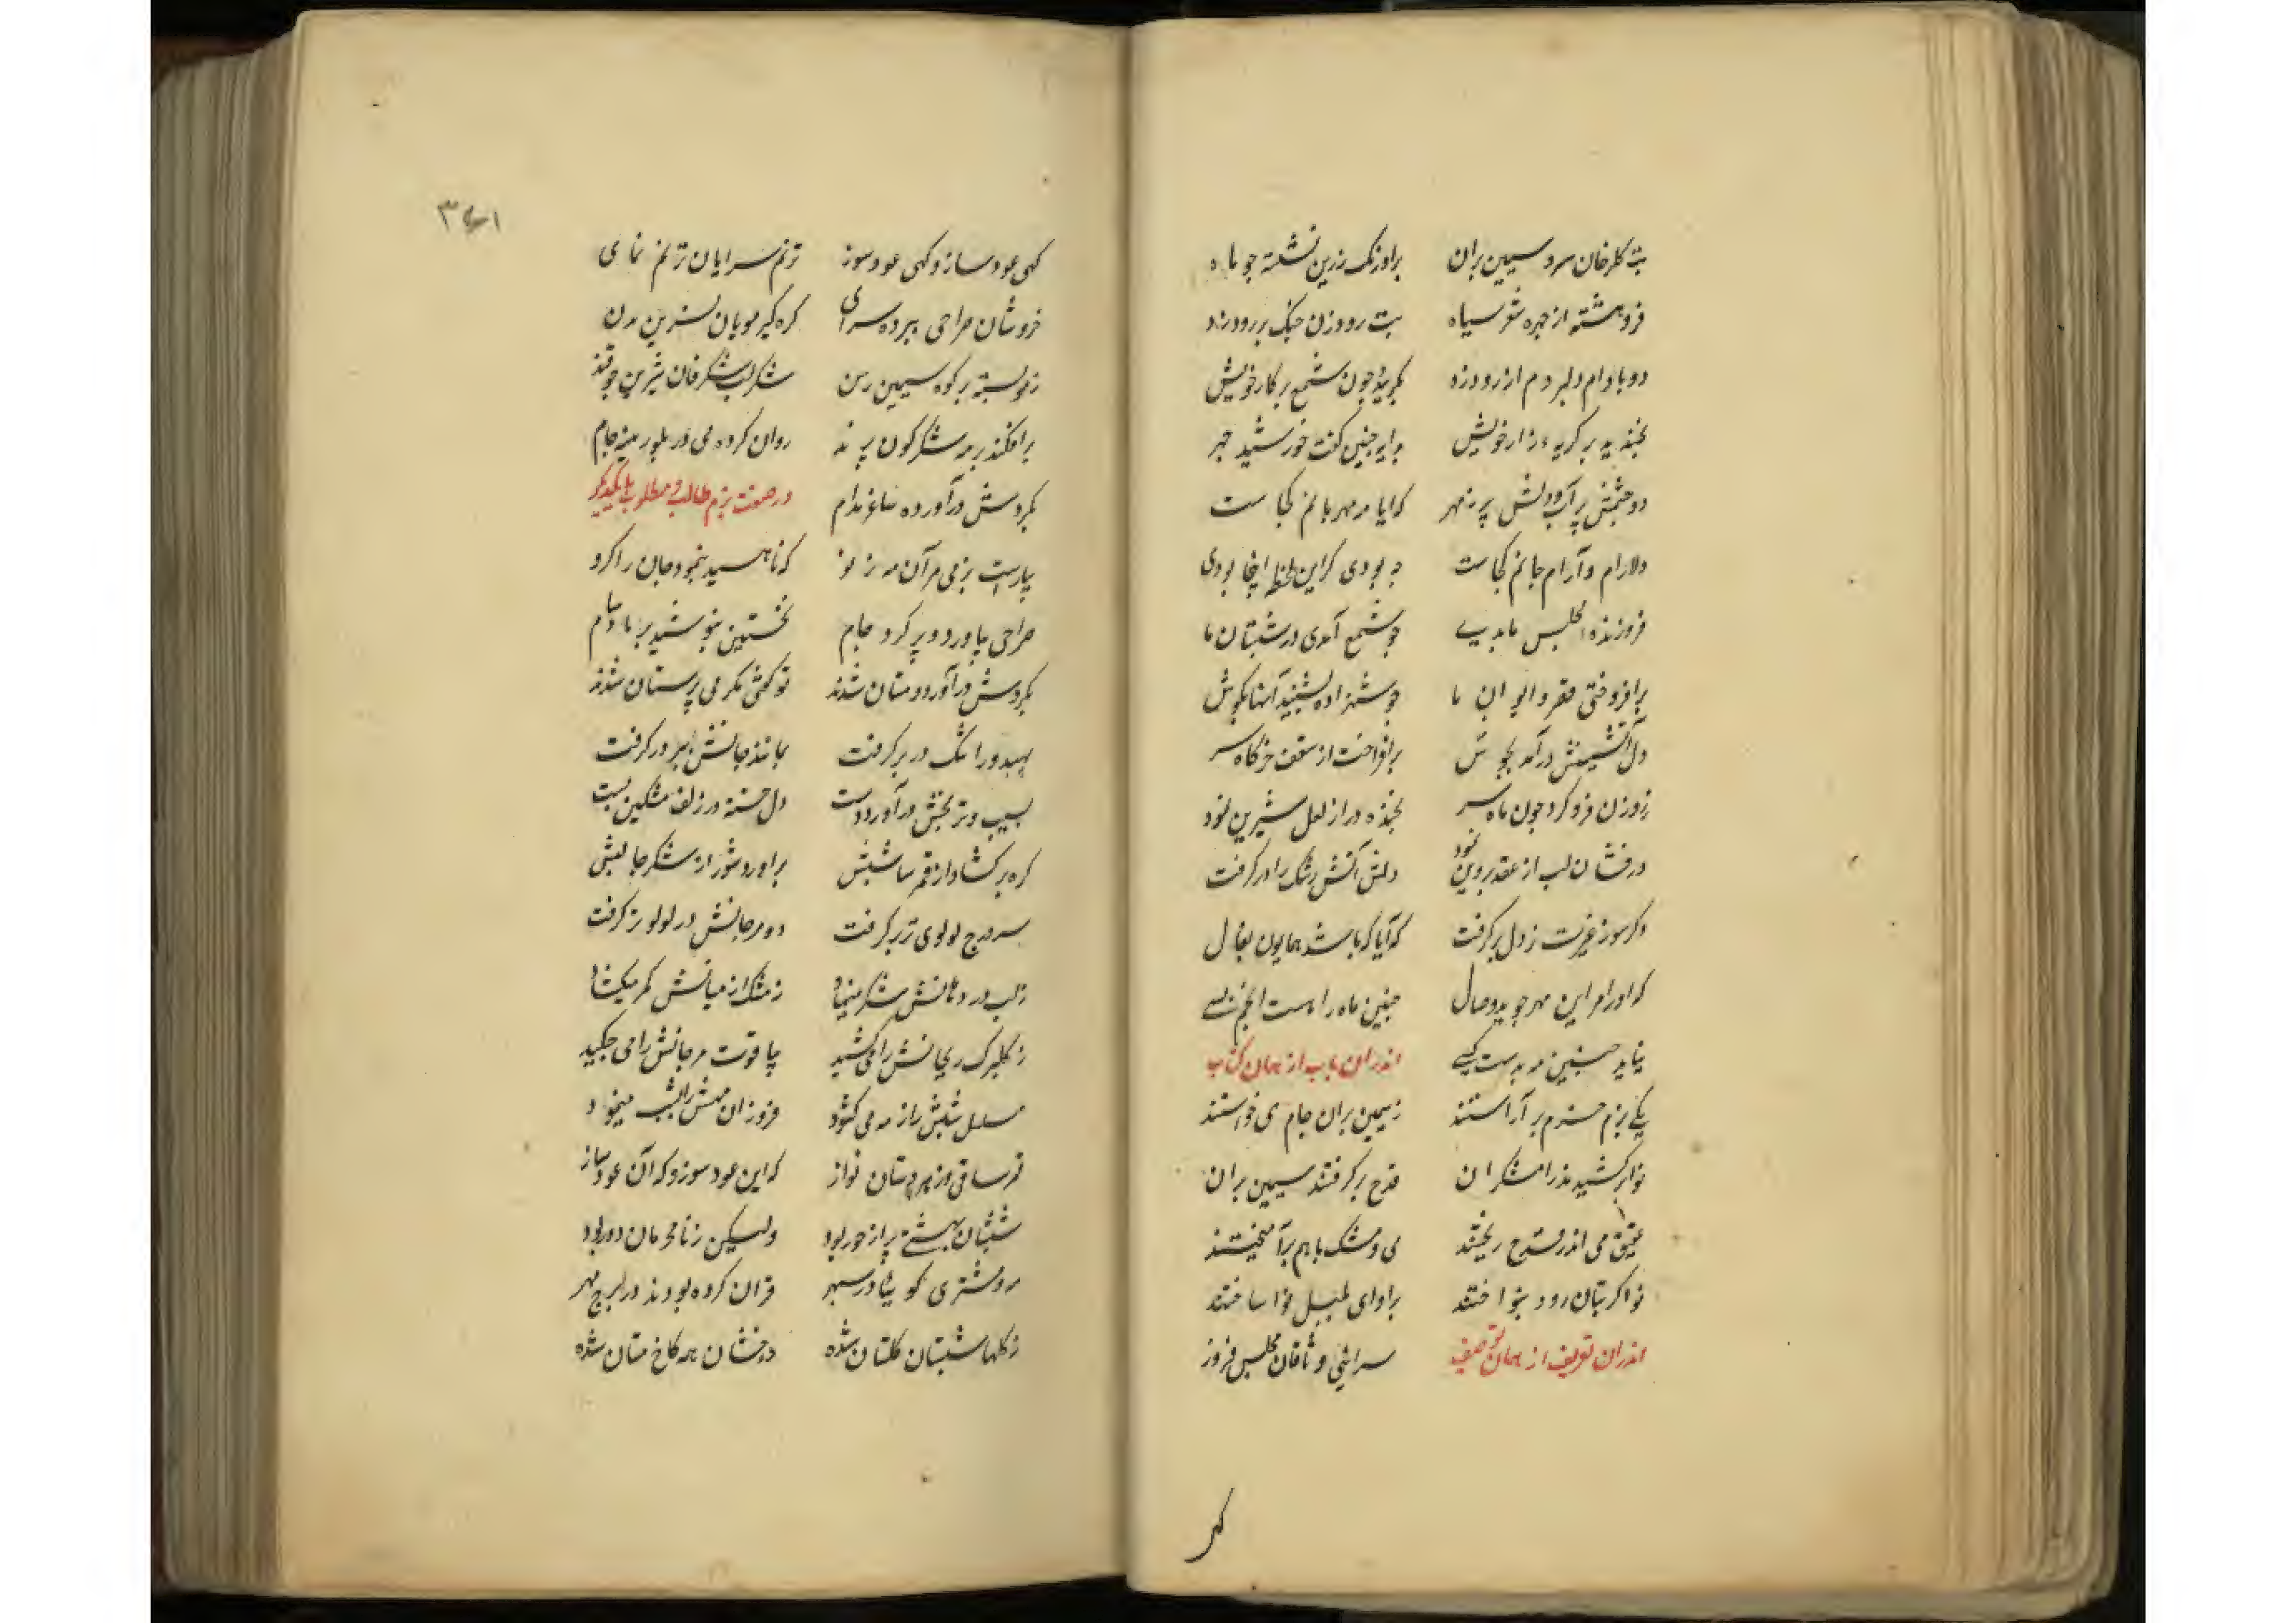 بت گلرخان سرو سیمین بران براورنگ زرین نشسته چو ماه
فروهشته از چهره شعر سیاه بت رود زن چنگ بر رود زد
دو بادام دلبر دم از رود زد بگرید چون شمع بر کار خویش
بخندید بر گریه زار خویش برایر چنین گفت خورشید چهر
دو چشمش پر آب و دلش پر ز مهر که ایا مه مهربانم کجاست
دلارام و آرام جانم کجاست چه بودی گر این لحظه اینجا بودی
فروزنده مجلس ما بدی چو شمع آمدی در شبستان ما
برافروختی قصر و ایوان ما چو شهزاده بشنید آنها بگوش
دل آتشینش درآمد بجوش برافراخت از سقف خرگاه سر
ز روزن فرو کرد چون ماه سر بخنده در از لعل شیرین نمود
درفشان لب از عقد پروین نمود دلش آتش رشک را در گرفت
دگر سوز غیرت ز دل بر گرفت که آیا که باشد همایون بفال
که او را مر این مهر جوید وصال چنین ماه را هست انجم بسی
نیاید چنین مه بدست کسی اندران باب از همان کتاب
یکی بزم خرم بر آراستند ز سیمین بران جام می خواستند
نوا برکشیدند رامشگران قدح برگرفتند سیمین بران
عقیق می اندر قدح ریختند می و مشک با هم برآمیختند
نواگر بتان رود بنواختند بر اوای بلبل نوا ساختند
اندران تعریف از همان توصیف سرائی وثاقان مجلس فروز
کهی
۳۶۱
کهی عود ساز و کهی عود سوز ترنم سرایان ترنم نمای
خروشان صراحی بپرده سرای گره گیر مویان نسترن بدن
فرو بسته بر کوه سیمین رسن شکر لب شگرفان شیرین چو قند
برافکنده بر مه شکرگون پرند روان کرده می در بلورینه جام
بگردش درآورده ساغر مدام در صفت بزم طالب و مطلوب با یکدیگر
بیاراست بزمی مر آن مه ز نو که ناهید بنمود جان را گرو
صراحی بیاورد و پر کرد جام نخستین بنوشید بر یاد سام
بگردش درآورد و مستان شدند تو گفتی مگر می پرستان شدند
سپهبد ورا تنگ در بر گرفت بماند جانش ببر در گرفت
بسیب و ترنجش درآورد دست دل خسته در زلف مشکین ببست
گره برگشاد از قمر سا شبش براورد شور از شکر جا لبش
سر درج لولوی تر برگرفت دو مرجانش در لولو تر گرفت
ز لب در دهانش شکر مینهاد ز مشک از میانش کمر میگشاد
ز گلبرگ ریحانش را می کشید بیاقوت مرجانش را می چکید
مسلسل شبش را ز مه می گشود فروزان مهش را بشب مینمود
قمر ساقی و زهره دستان نواز که این عود سوز و که آن عود ساز
شبستان بهشتی پر از حور بود ولیکن ز نامحرمان دور بود
مه و مشتری گوییا در سپهر قران کرده بودند در برج مهر
ز گلها شبستان گلستان شده درخشان همه کاخ مستان شده